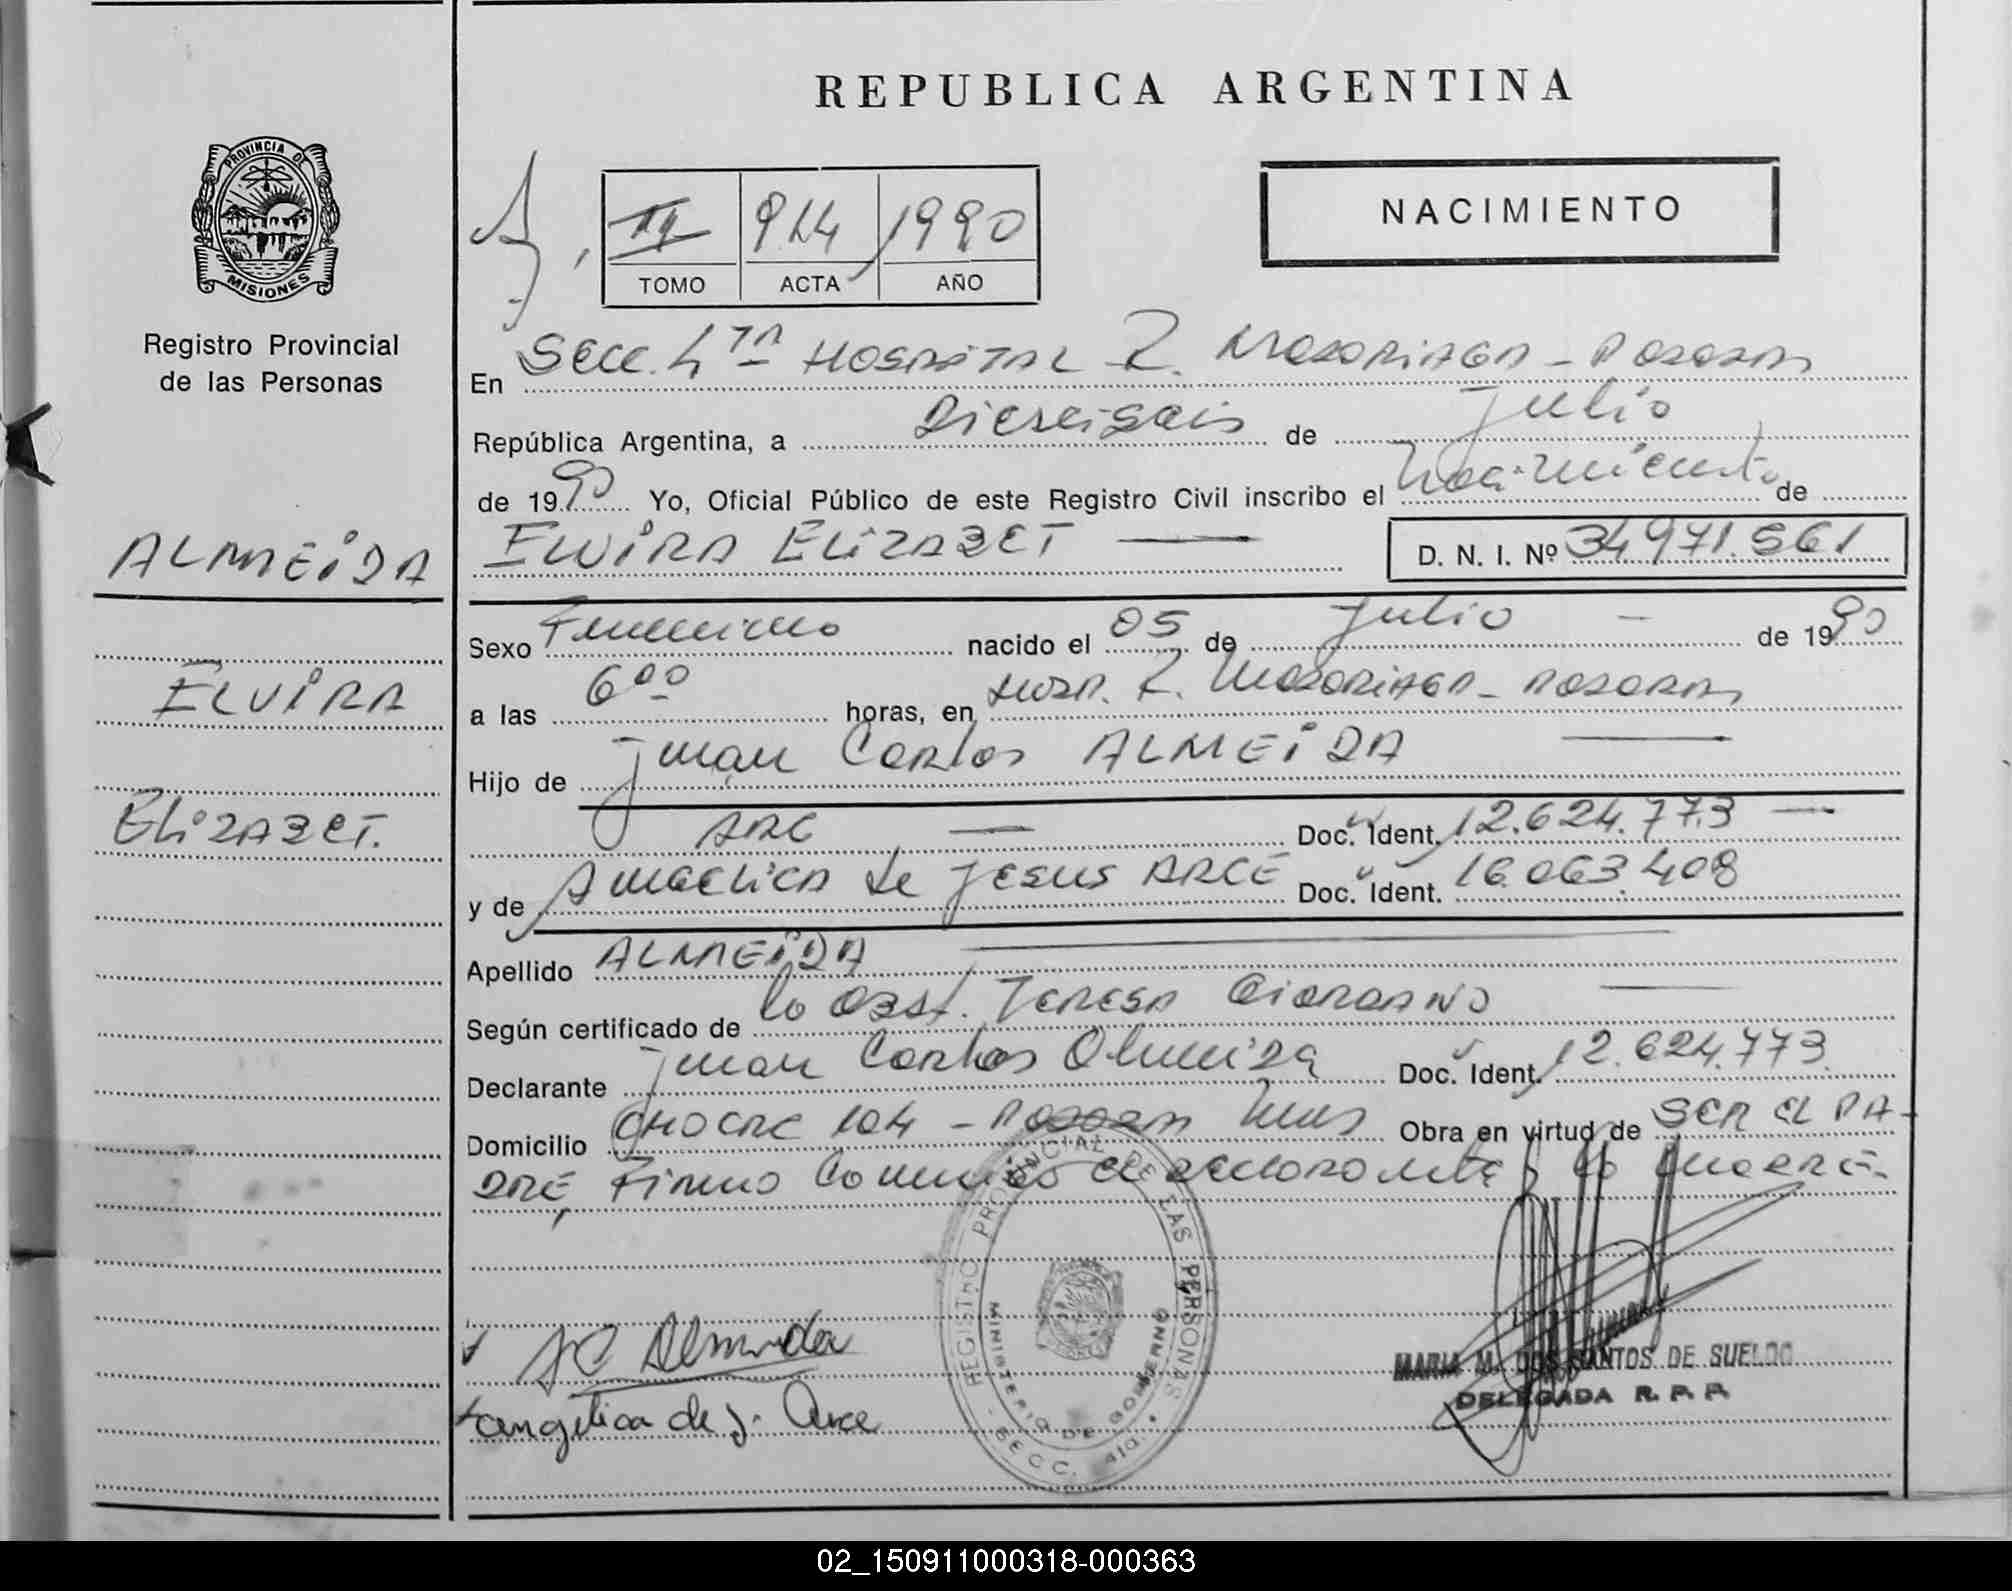 REPUBLICA ARGENTINA
PROVINCIA DE
MISIONES
Registro Provincial
de las Personas
1990
TOMO ACTA AÑO
NACIMIENTO
En Secc. 4ta HOSPITAL R. MADARIAGA - POSADAS
República Argentina, a Dieciseis de Julio
de 1990 Yo, Oficial Público de este Registro Civil inscribo el Nacimiento de
ELVIRA ELIZABET D. N. I. Nº 34.971.561
ALMEIDA
ELVIRA
ELIZABET.
Sexo Femenino nacido el 05 de Julio de 1990
a las 6 00 horas, en Hosp. R. MADARIAGA - POSADAS
Hijo de Juan Carlos ALMEIDA
Doc. Ident. 12.624.773
y de Angelica de Jesus ARCE Doc. Ident. 16.063.408
Apellido ALMEIDA
Según certificado de la Obst. TERESA GIORDANO
Declarante Juan Carlos Almeida Doc. Ident. 12.624.773
Domicilio 104 - POSADAS Mnes Obra en virtud de SER EL PA-
DRE, Firma conmigo el declarante y la MADRE.
REGISTRO PROVINCIAL DE LAS PERSONAS
MINISTERIO DE GOBIERNO
SECC. 4ta.
JC Almeida
Angélica de J. Arce
MARIA M. DOS SANTOS DE SUELDO
DELEGADA R. P. P.
02_150911000318-000363